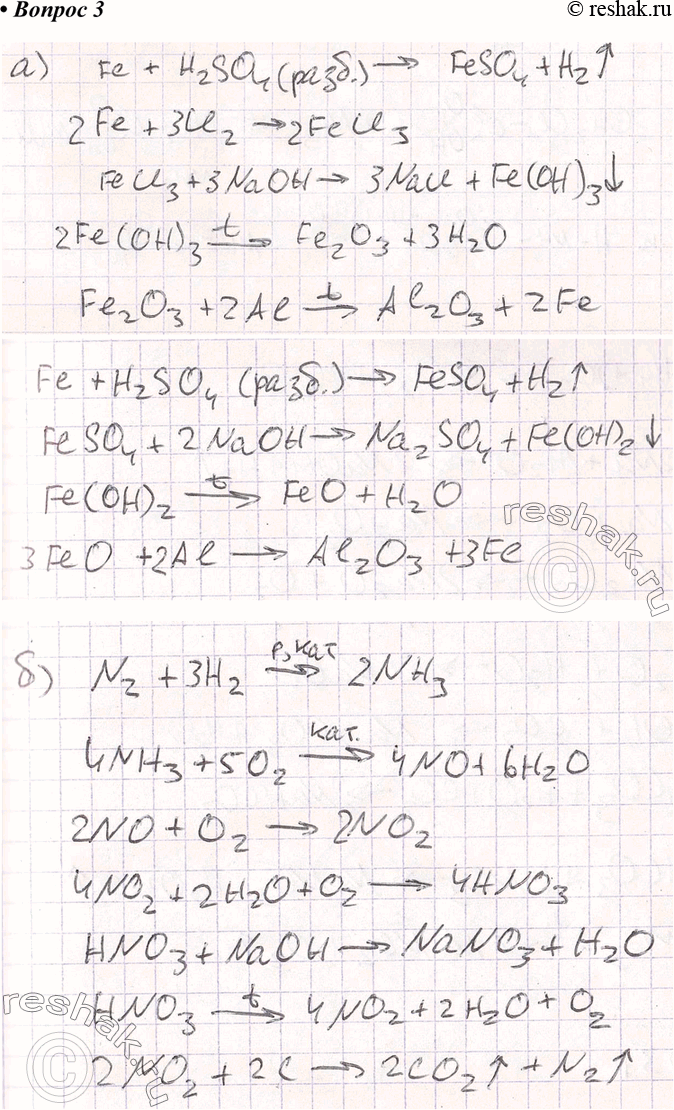 • Вопрос 3
© reshak.ru
а) Fe + H₂SO₄(разб.) → FeSO₄ + H₂↑
2Fe + 3Cl₂ → 2FeCl₃
FeCl₃ + 3NaOH → 3NaCl + Fe(OH)₃↓
2Fe(OH)₃ t→ Fe₂O₃ + 3H₂O
Fe₂O₃ + 2Al t→ Al₂O₃ + 2Fe
Fe + H₂SO₄ (разб.) → FeSO₄ + H₂↑
FeSO₄ + 2NaOH → Na₂SO₄ + Fe(OH)₂↓
Fe(OH)₂ t→ FeO + H₂O
3FeO + 2Al → Al₂O₃ + 3Fe
reshak.ru
©
б) N₂ + 3H₂ p,кат→ 2NH₃
4NH₃ + 5O₂ кат.→ 4NO + 6H₂O
2NO + O₂ → 2NO₂
4NO₂ + 2H₂O + O₂ → 4HNO₃
HNO₃ + NaOH → NaNO₃ + H₂O
HNO₃ t→ 4NO₂ + 2H₂O + O₂
2NO₂ + 2C → 2CO₂↑ + N₂↑
reshak.ru
©